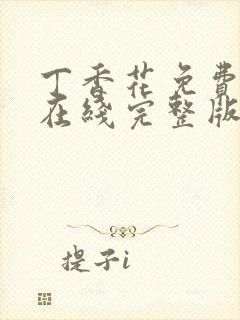 丁香花免費
在綫完整版
提子i